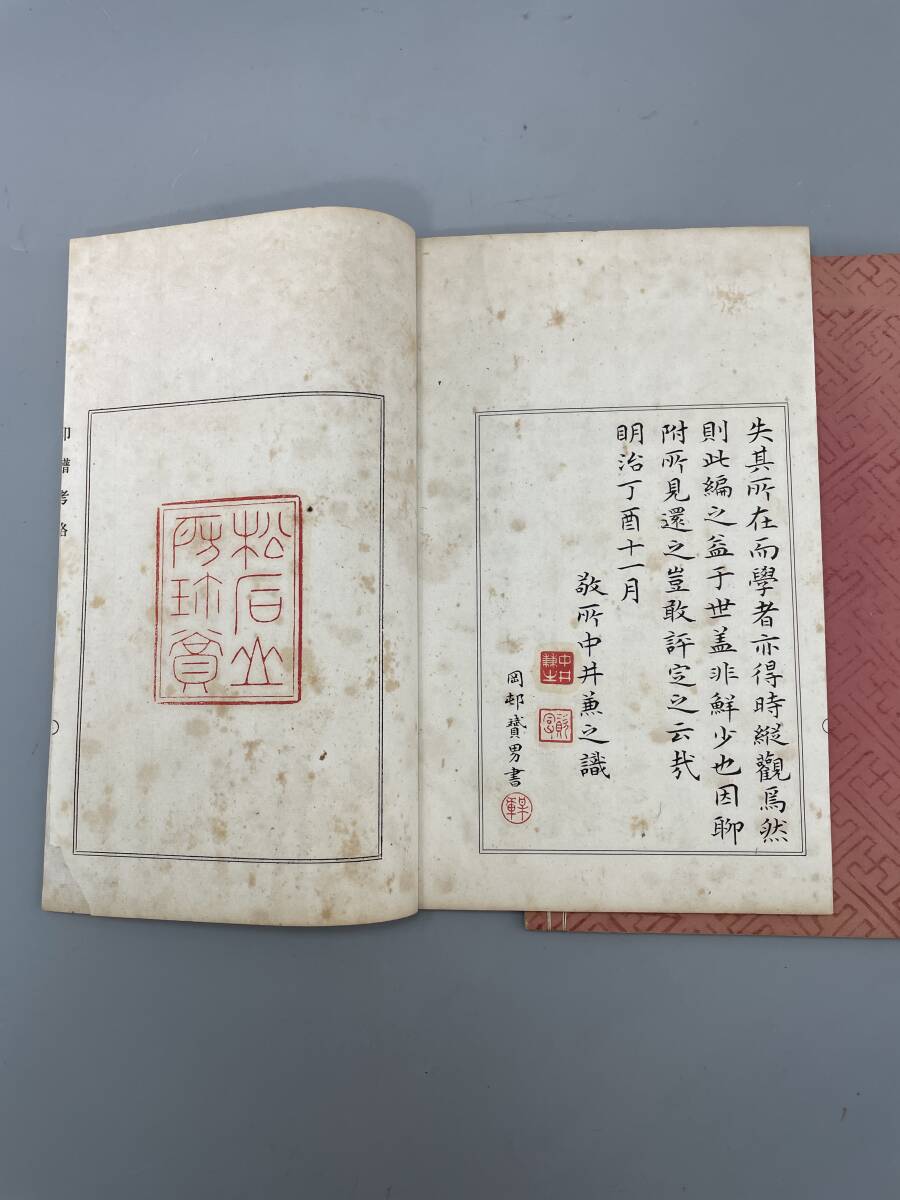 失其所在而學者亦得時縱觀焉然
則此編之益于世盖非鮮少也因聊
附所見還之豈敢評定之云哉
明治丁酉十一月
敬所中井兼之識
岡邨寶男書
松石山
房珎賞
印譜考略